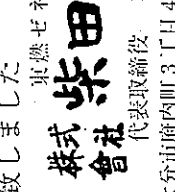 致しました
東燃ゼネ
株式會社 柴田
代表取締役
大分市府内町3丁目4